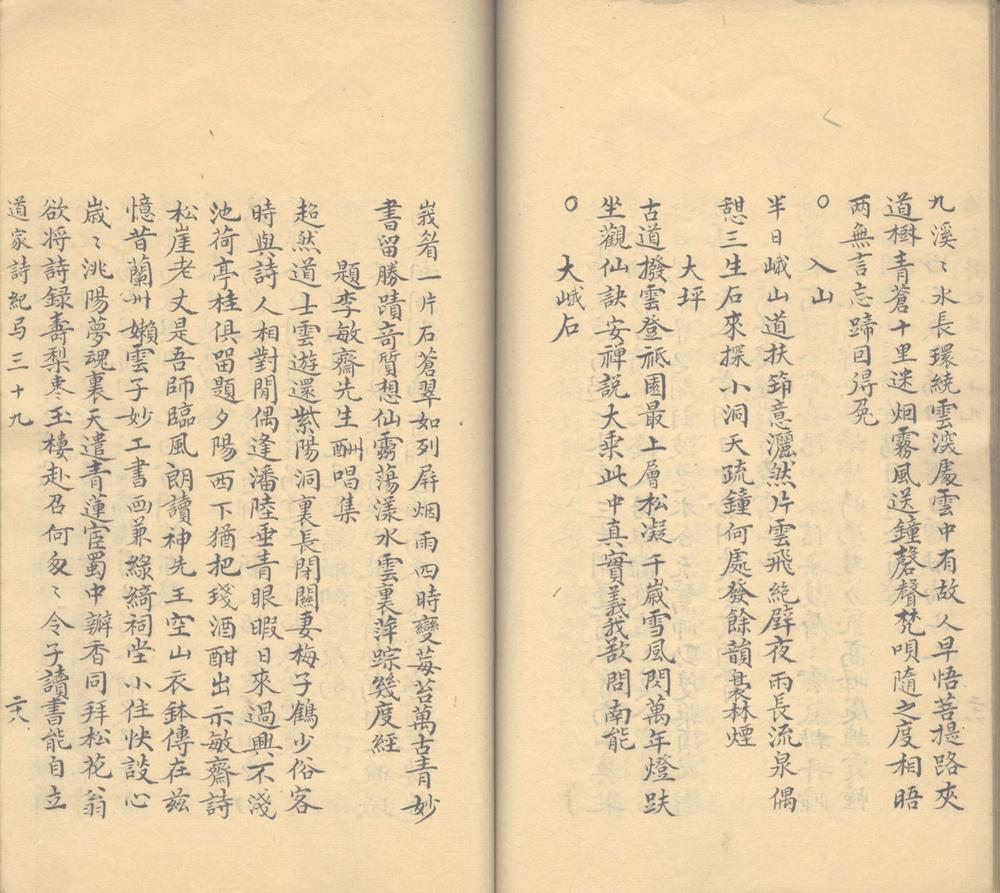 九溪〻水長環繞雲深處雲中有故人早悟菩提路夾
道樹青蒼十里迷烟霧風送鐘磬聲梵唄隨之度相晤
两無言忘蹄曰得兔
○　入山
半日峨山道扶筇意灑然片雲飛絶壁夜雨長流泉偶
憇三生石來探小洞天疏鐘何處發餘韻裊林煙
大坪
古道撥雲登祗園最上層松凝千歲雪風閃萬年燈趺
坐觀仙訣安禅説大乘此中真實義我欲問南能
○　大峨石
峩眷一片石蒼翠如列屏烟雨四時變莓苔萬古青妙
書留勝蹟奇質想仙靈蕩漾水雲裏萍踪幾度經
題李敏齋先生酬唱集
超然道士雲遊還紫陽洞裏長閉關妻梅子鶴少俗客
時與詩人相對閒偶逢潘陸垂青眼暇日來過興不淺
池荷亭桂俱留題夕陽西下猶把琖酒酣出示敏齋詩
松崖老丈是吾師臨風朗讀神先王空山衣鉢傳在兹
憶昔蘭州嬾雲子妙工書画兼綠綺祠堂小住快談心
歲〻洮陽夢魂裏天遣青蓮宦蜀中瓣香同拜松花翁
欲將詩録壽梨棗玉樓赴召何匆〻令子讀書能自立
道家詩紀弓三十九